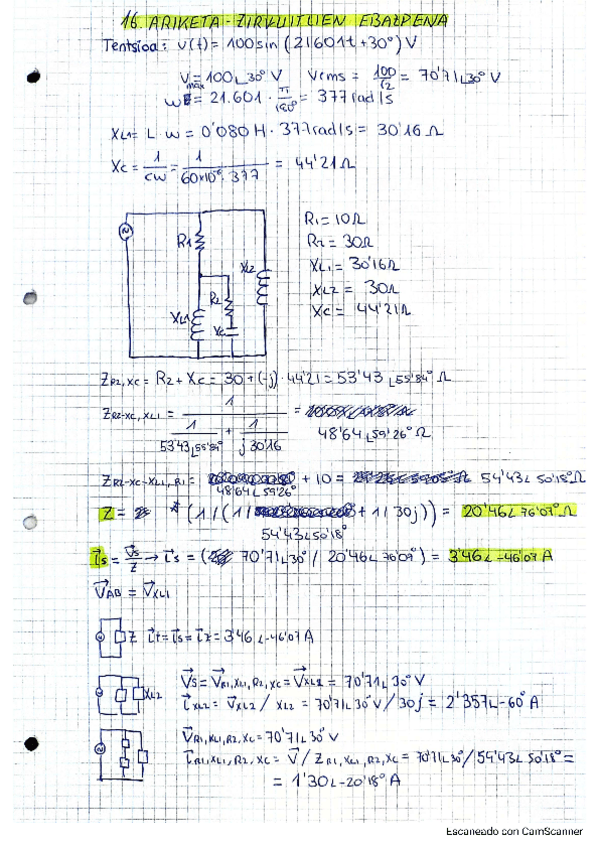 16. ARIKETA - ZIRKUITUEN EBAZPENA
Tentsioa: v(t) = 100 sin (21601t + 30°) V
Vmax = 100∟30° V   Vrms = 100/√2 = 70'71∟30° V
w = 21.601 · π/180° = 377 rad/s
XL1 = L · w = 0'080 H · 377 rad/s = 30'16 Ω
XC = 1/cw = 1/60x10⁻⁶·377 = 44'21 Ω
R1 = 10Ω
R2 = 30Ω
XL1 = 30'16Ω
XL2 = 30Ω
XC = 44'21Ω
R1
XL2
R2
XL1
XC
ZR2,XC = R2 + XC = 30 + (-j) · 44'21 = 53'43 ∟55'84° Ω
ZR2-XC,XL1 = 1 / (1/53'43∟55'84° + 1/j30'16) = 48'64∟59'26° Ω
ZR2-XC-XL1,R1 = 48'64∟59'26° + 10 = 54'43∟50'18° Ω
Z = (1/(1/54'43∟50'18° + 1/30j)) = 20'46∟76'07° Ω
is = Vs/Z → is = (70'71∟30° / 20'46∟76'07°) = 3'46∟-46'07 A
VAB = VXL1
Z iT = is = iZ = 3'46∟-46'07 A
XL2
Vs = VR1,XL1,R2,XC = VXL2 = 70'71∟30° V
iXL2 = VXL2 / XL2 = 70'71∟30° V / 30j = 2'357∟-60° A
VR1,XL1,R2,XC = 70'71∟30° V
iR1,XL1,R2,XC = V / ZR1,XL1,R2,XC = 70'71∟30° / 54'43∟50'18° =
= 1'30∟-20'18° A
Escaneado con CamScanner